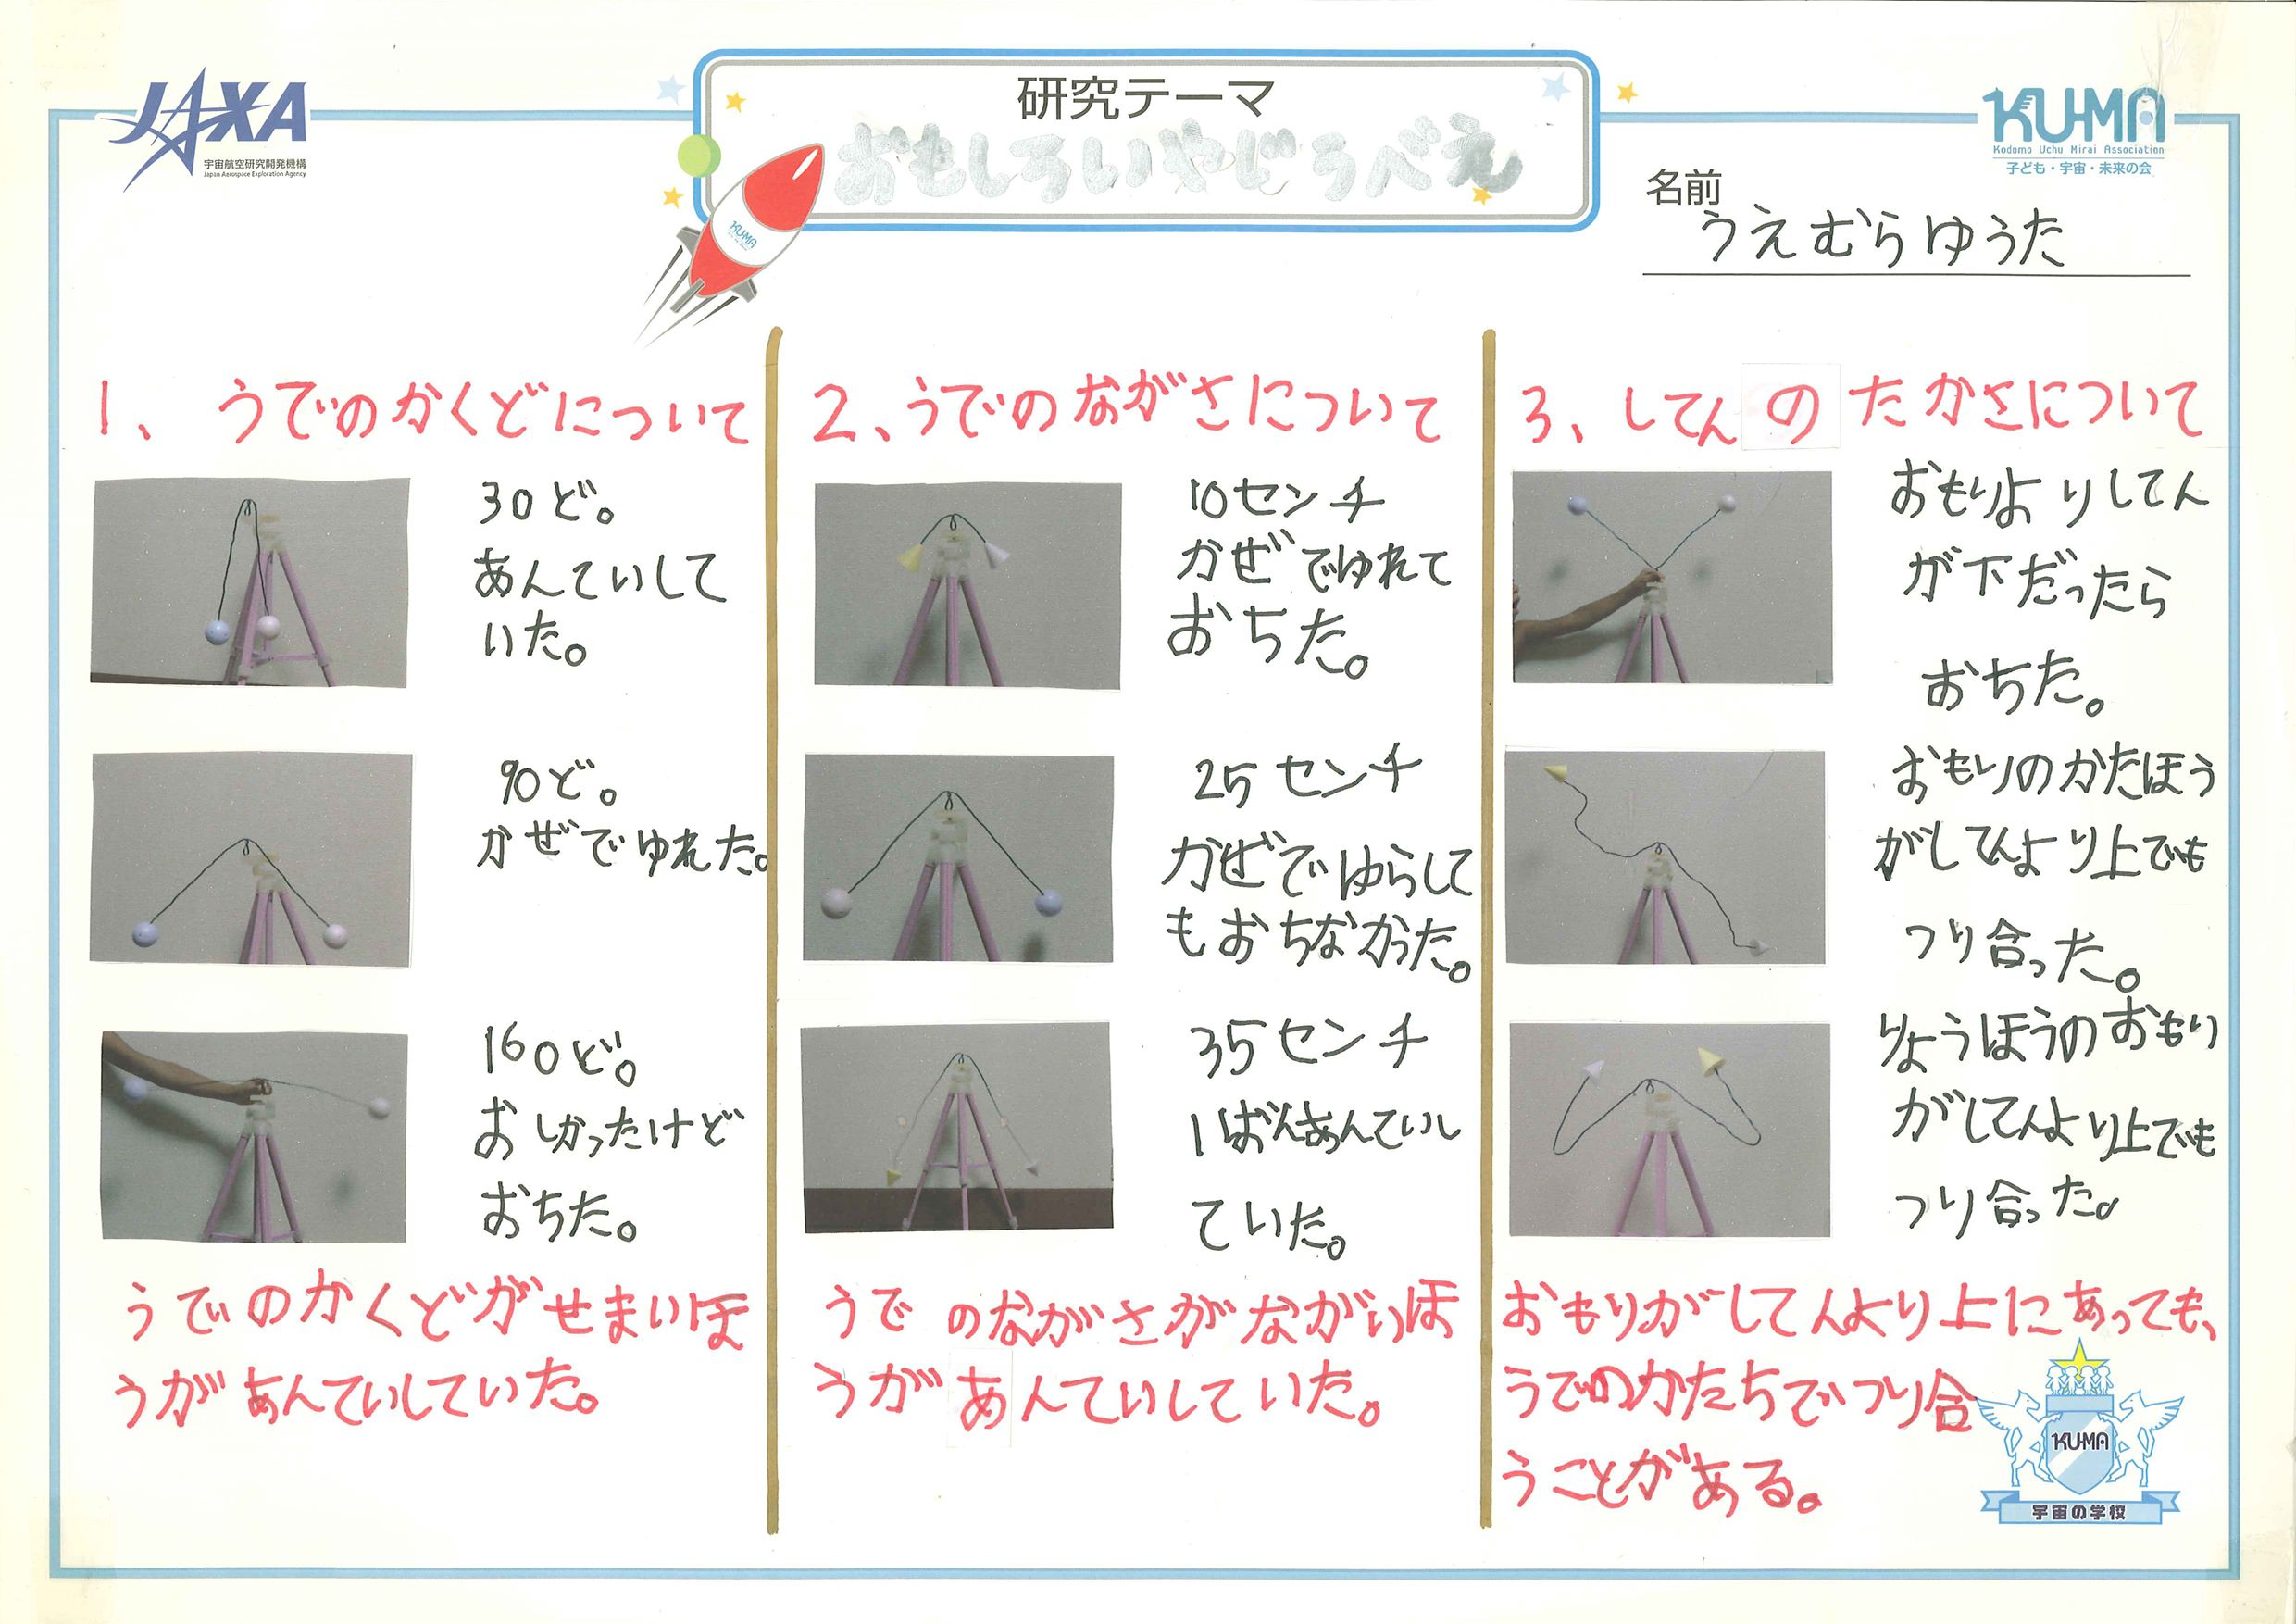 JAXA
宇宙航空研究開発機構
Japan Aerospace Exploration Agency
研究テーマ
おもしろいやじろうべえ
KUMA
KU-MA
Kodomo Uchu Mirai Association
子ども・宇宙・未来の会
名前
うえむらゆうた
1、うでのかくどについて
30ど。
あんていして
いた。
90ど。
かぜでゆれた。
160ど。
おしかったけど
おちた。
うでのかくどがせまいほ
うがあんていしていた。
2、うでのながさについて
10センチ
かぜでゆれて
おちた。
25センチ
かぜでゆらして
もおちなかった。
35センチ
1ばんあんていし
ていた。
うでのながさがながいほ
うがあんていしていた。
3、してんのたかさについて
おもりよりしてん
が下だったら
おちた。
おもりのかたほう
がしてんより上でも
つり合った。
りょうほうのおもり
がしてんより上でも
つり合った。
おもりがしてんより上にあっても、
うでのかたちでつり合
うことがある。
KUMA
宇宙の学校